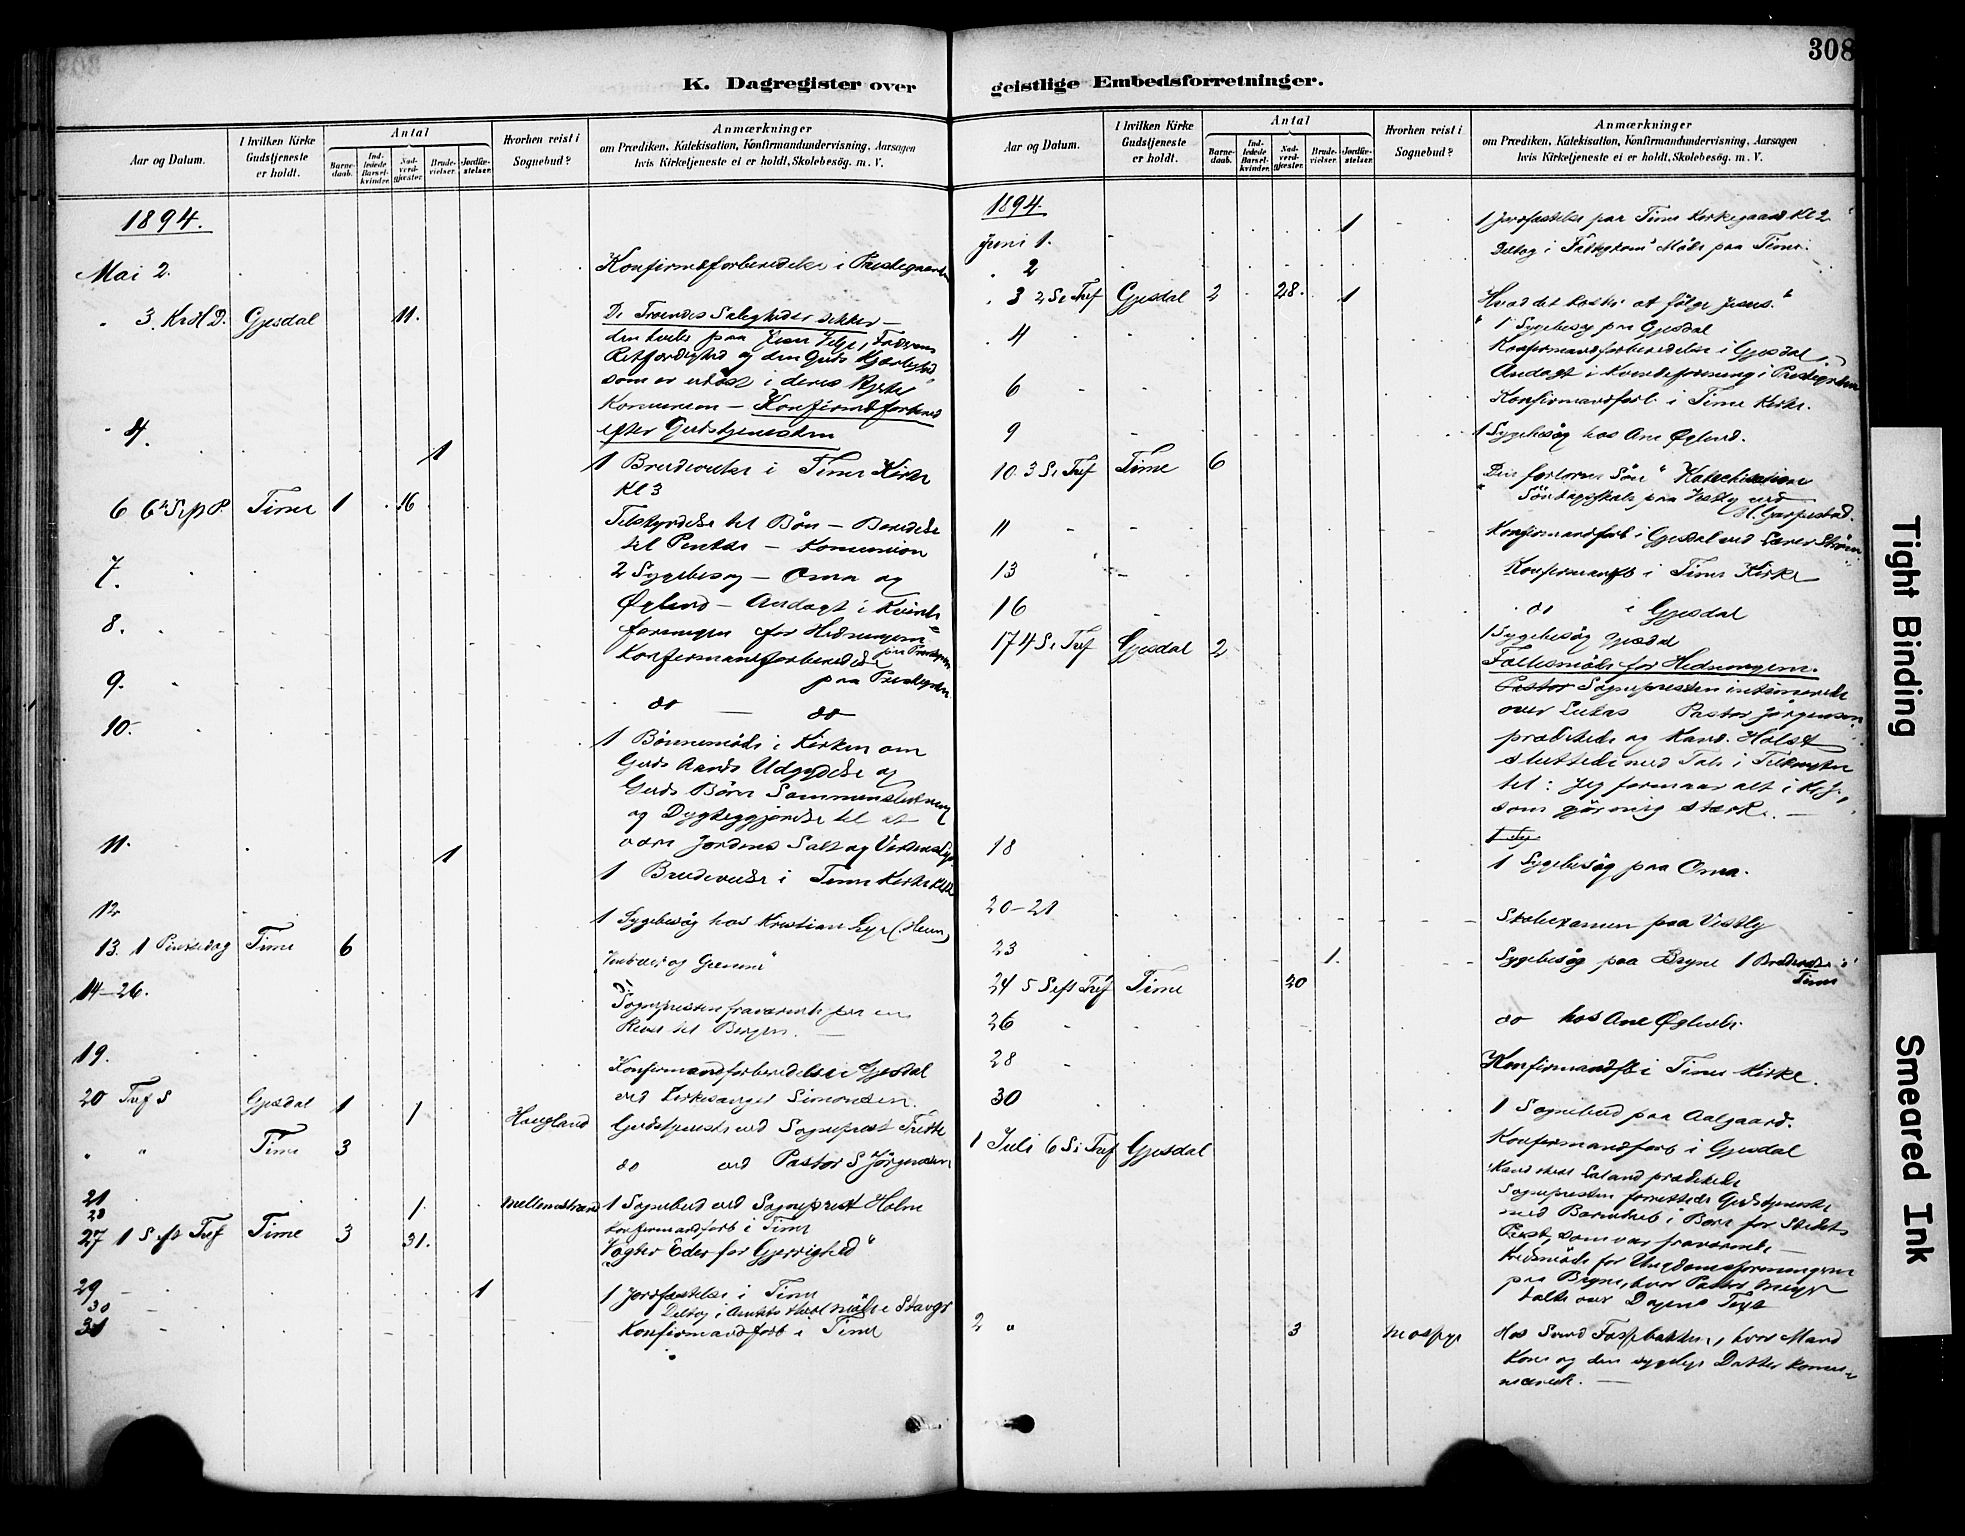 308
K. Dagregister over
Aar og Datum.
I hvilken Kirke Gudstjeneste er holdt.
Antal
Barne-daab.
Ind-ledede Barsel-kvinder.
Nad-verd-gjæster.
Brude-vielser.
Jordfæ-stelser.
Hvorhen reist i Sognebud?
Anmærkninger
om Prædiken, Katekisation, Konfirmandundervisning, Aarsagen
hvis Kirketjeneste ei er holdt, Skolebesøg. m. V.
1894.
Mai 2.
Konfirmdforberedelse i Prestegaarden
" 3. Kr H D. Gjesdal 11. De Troendes Saligheder sikker -
den hviler paa
Retfærdighed og den Guds Kjærlighed
som er udøst i deres Hjerter
Konfirmdforbered
efter Gudstjenesten
" 4. 1 1 Brudevielse i Time Kirke
Kl 3
6 6 S. p P Time 1 16
Tilskyndelse til Bøn - Beredelse
til Pintse -
7. 2 Sygebesøg - Oma og
Øglend - Andagt i Kvinde-
8. foreningen for Hedningem
Konfirmandforberedelse
paa Prestegrden
9. do do
10. 1 Bønnemøde i Kirken om
Guds Aands Udgydelse og
Guds Børns Sammenslutning
og Dygtiggjørelse til at
være Jordens Salt og Verdens Lys
11. 1 1 Brudevielse i Time Kirke
12 1 Sygebesøg hos Kristian Lye (Heim)
13. 1 Pintsedag Time 6
14-26. Sognepresten fraværende paa en
Reise til Bergen.
19. Konfirmandforberedelse i Gjesdal
ved Kirkesanger Simonsen.
20 Tref S Gjesdal 1 1 Haugland Gudstjeneste ved Sogneprest Tvette
" " Time 3 do ved Pastor S Jørgensen
21 1. Mellemstrand 1 Sognebud ved Sogneprest Holm
28 Konfirmandforb i Time
27 1 S eft Tref Time 3 31. "Vogter Eder for Gjerrighed"
29 1 1 Jordfæstelse i Time
30
31 Konfirmandforb i Time
geistlige Embedsforretninger.
Aar og Datum.
I hvilken Kirke Gudstjeneste er holdt.
Antal
Barne-daab.
Ind-ledede Barsel-kvinder.
Nad-verd-gjæster.
Brude-vielser.
Jordfæ-stelser.
Hvorhen reist i Sognebud?
Anmærkninger
om Prædiken, Katekisation, Konfirmandundervisning, Aarsagen
hvis Kirketjeneste ei er holdt, Skolebesøg. m. V.
1894.
Juni 1. 1 1 Jordfæstelse paa Time Kirkegaard Kl 2
" 2 Deltog i Fattigkom Møde paa Time.
" 3 2 S e Tref Gjesdal 2 28. 1 "Hvad det koster at følge Jesus."
1 Sygebesøg paa Gjesdal
" 4 Konfirmandforberedelse i Gjesdal
Andagt i Kvindeforening i Prestegrden
6 Konfirmandforb. i Time Kirke.
9 1 Sygebesøg hos Ane Øglend.
10. 3 S e Tref Time 6 "Den fortorne Søn" Katechisation
Søndagsskole paa Vestly ved
H. Garpestad.
11 Konfirmandforb i Gjesdal ved Lærer Strøm
13 Konfirmandfb i Time Kirke
16 do i Gjesdal
17 4 S e Tref Gjesdal 2 1 Sygebesøg Gjesdal
Fællesmøde for Hedningem.
Pastor Sognepresten intimerede
over Lukas Pastor Jørgensen
prædikede og Kand. Holst
sluttede med Tale i Tilknytn
til: Jeg formaar alt i Kr J.,
som gjør mig stærk. -
1 Sy
18 1 Sygebesøg paa Oma.
20-21 Skolexamen paa Vestly
23 1. Sygebesøg paa Bryne 1 Brudevielse i
Time
24 5 S eft Tref Time 20
26 do hos Ane Øglend.
28 Konfirmandfb i Time Kirke.
30 1 Sognebud paa Aalgaard.
Konfirmandforb i Gjesdal
1 Juli 6 S e Tref Gjesdal
prædikede
Sognepresten forrettede Gudstjeneste
med Barnedaab i Bore for Stedets
Prest, som var fraværende -
Kredsmøde for Ungdomsforeningerne
paa Bryne, hvor Pastor
talte over Dagens Text
2 " 3 Hos Fosse bakken, hvor Mand
Kone og den sygelige Datter kommu-
nicerede. -
Tight Binding
Smeared Ink